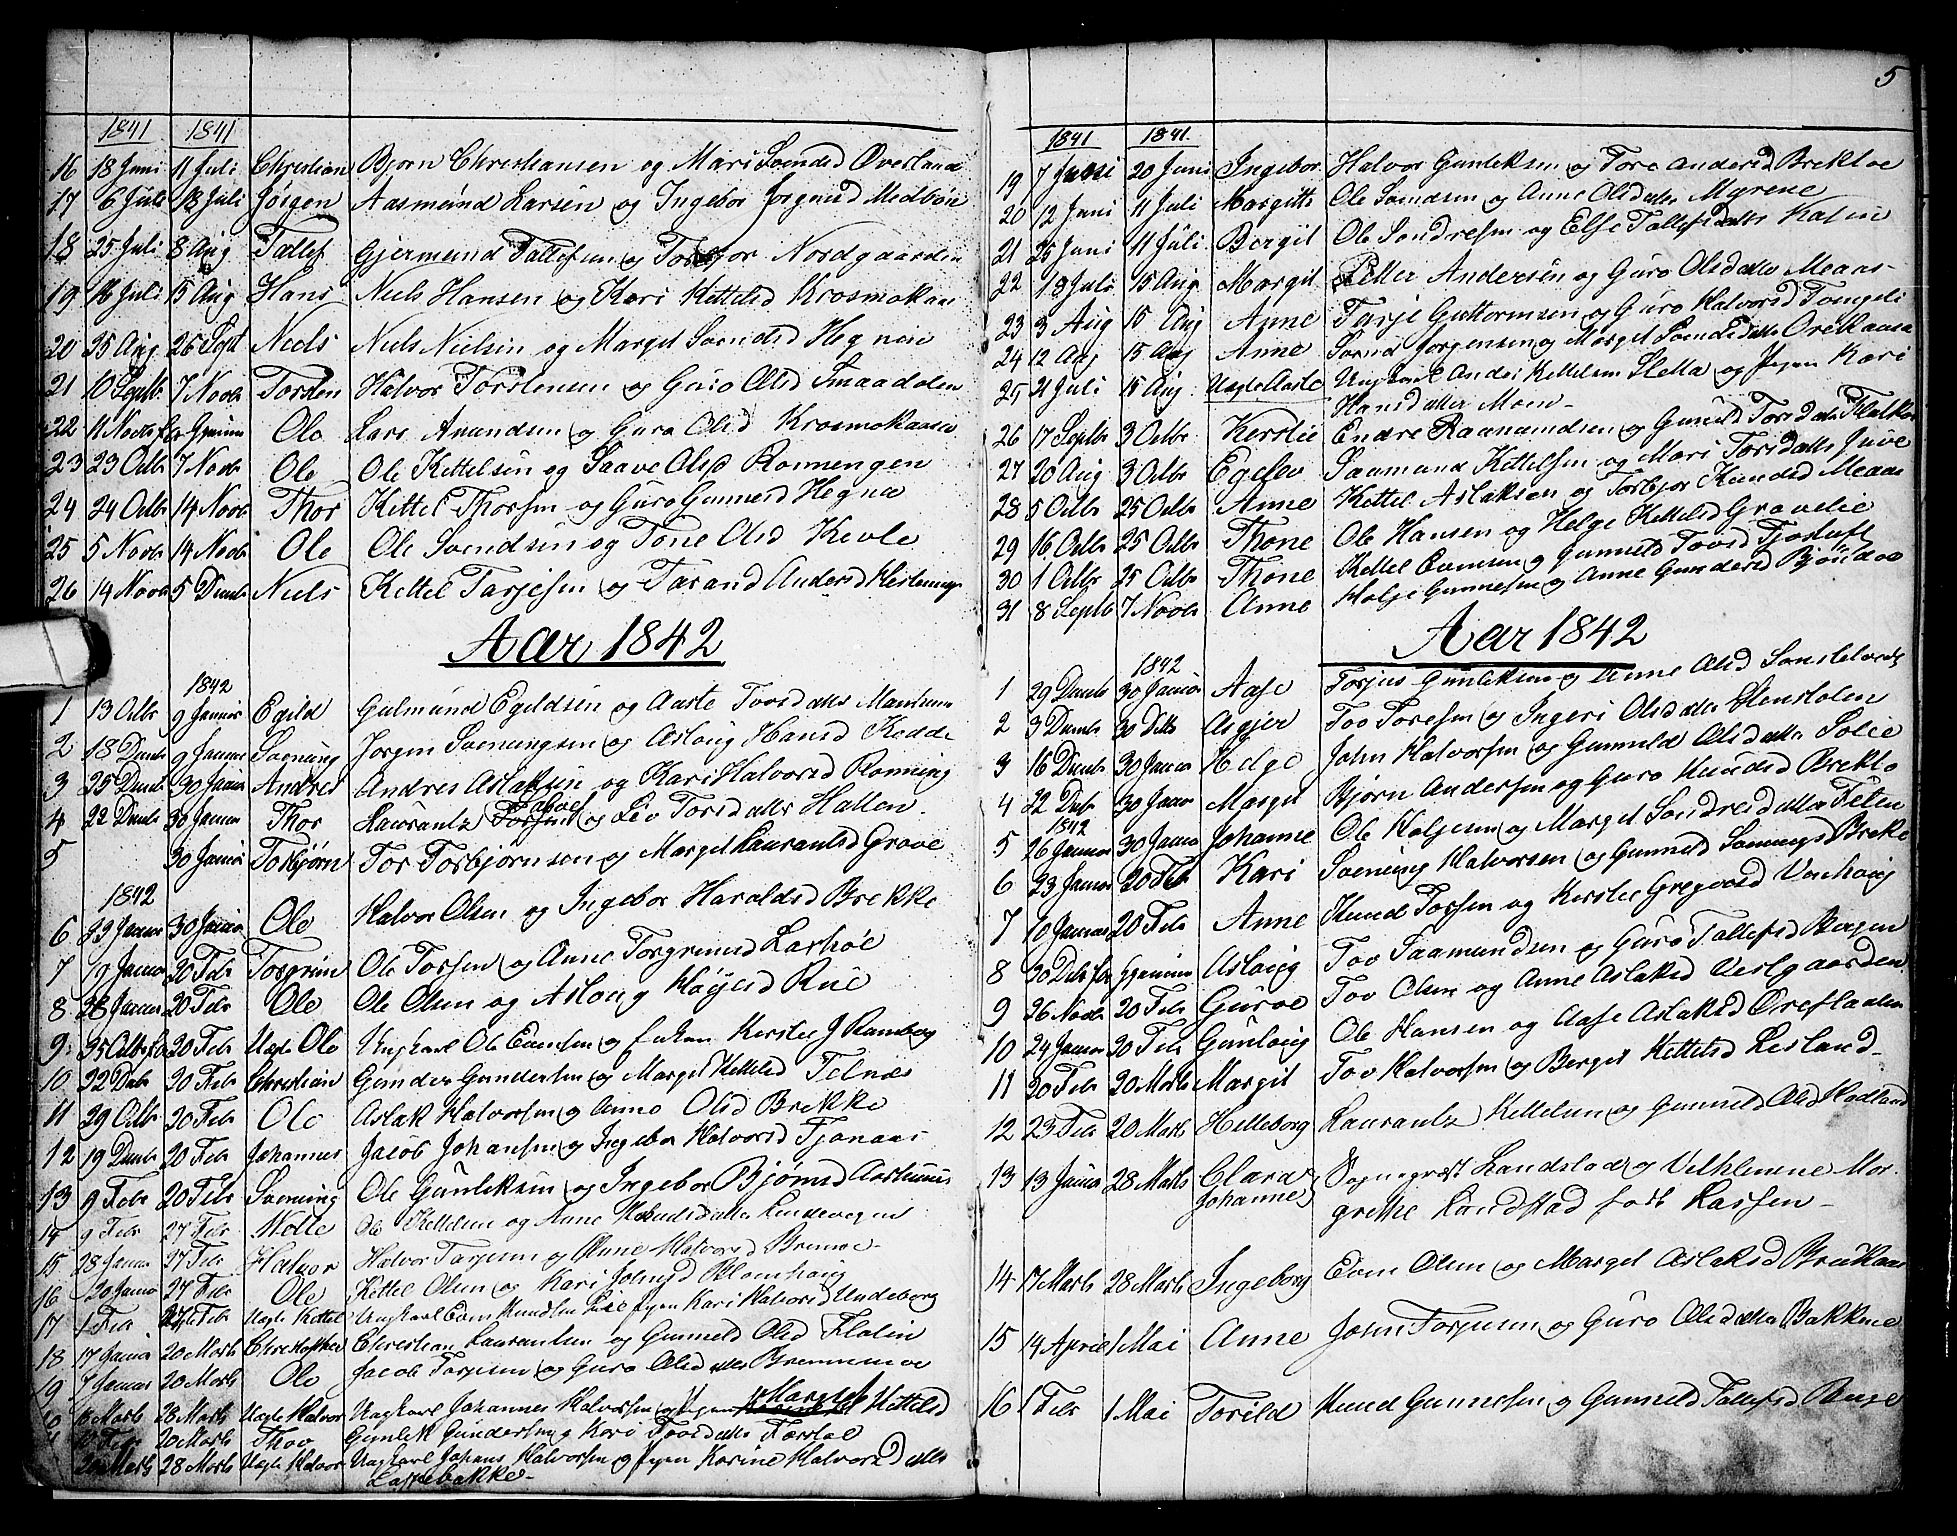 1841 1841
16 18 Juni 11 Juli Christian Bjørn Christiansen og Mari Svendsd Overland
17 6 Juli 18 Juli Jørgen Aasmund Larsen og Ingebor Jorgensd Medbøen
18 25 Juli 8 Aug Tallef Gjermund Tallefsen og Torbjor Nordgaarden
19 16 Juli 15 Aug Hans Niels Hansen og Kari Kettelsd Krosmokaas
20 25 Aug 26 Sept Niels Niels Nielsen og Margit Svendsd Hegnie
21 10 Septb 7 Novb Torsten Halvor Torstensen og Guro Olsd Smaadalen
22 11 Novbr Ole Lars Amundsen og Guro Olsd Krosmokaasa
23 23 Octb 7 Novb Ole Ole Kettelsen og Saave Olsd Romengen
24 24 Octb 14 Novb Thor Kettel Thorsen og Guro Gunnersd Hegna
25 5 Novb 14 Novb Ole Ole Svendsen og Tone Olsd Kevle
26 14 Novb 5 Decmb Niels Kettel Tarjesen og Tarand Andersd
Aar 1842
1842
1 13 Octb 9 Januar Egild Gulmund Egildsen og Aaste Tovsdatter
2 18 Decmb 9 Januar Svenung Jorgen Svenungsen og Aslaug Hansd Kodde
3 25 Decmb 30 Januar Andres Andres Aslaksen og Kari Halvorsd Ronning
4 22 Decmb 30 Januar Thor Laurantz og Liv Torsdatter Hatten
5 30 Januar Torbjørn Tor Torbjornsen og Margit Laurantsd Grave
1842
6 Januar 30 Januar Ole Halvor Olsen og Ingebor Haraldsd Brekke
7 9 Januar 20 Febr Torgrim Ole Torsen og Anne Torgrimsd Lashøe
8 28 Januar 20 Febr Ole Ole Olsen og Aslaug Høyesd Rue
9 25 Octb 20 Febr Uægte Ole Ungkarl Ole Evensen og Enken Kerstie J Ramberg
10 22 Decb 20 Febr Christian Gunder Gundersen og Margit Kettelsd Felnæs
11 29 Octb 20 Febr Ole Aslak Halvorsen og Anne Olsd Brekke
12 19 Decmb 20 Febr Johannes Jacob Johansen og Ingebor Halvorsd Tjonaas
13 9 Febr 20 Febr Svenung Ole Gunleksen og Ingebor Bjørnsd
14 9 Febr 27 Febr Ole Kettelsen og Anne
15 28 Januar 27 Febr Halvor Halvor Tarjesen og Anne Halvorsd
16 20 Januar 27 Febr Ole Kettel Olsen og Kari Johnsd Blomhaug
17 1 Febr 27 Febr Uægte Kettel Ungkarl Even Knudsen Lie Pigen Kari Halvorsd Undeberg
18 17 Januar 20 Marts Christopher Christian Laurantsen og Gunnild Olsd Flatin
19 7 Januar 20 Marts Ole Jacob Tarjesen og Guro Olsdatter
Marts 28 Marts Uægte Halvor Ungkarl Johannes Halvorsen og Pigen Margit Kettelsd
Febr 20 Marts Thov Gunlek Gundersen og Kari Tovsdatter
Marts 28 Marts Uægte Halvor Ungkarl Johans Halvorsen og Pigen Karine Halvorsdatter
Lassebakke
5
1841 1841
19 7 Juni 20 Juni Ingebor Halvor Gunleksen og Tore Andersd Brekløe
20 12 Juni 11 Juli Margitte Ole Svendsen og Anne Olsdatter Myrene
21 25 Juni 11 Juli Bergit Ole Sondresen og Else Tallefsdatter Kasin
22 18 Juli 15 Aug Margit Petter Andersen og Guro Olsdatter Meaas
23 3 Aug 15 Aug Anne Tarje Guttormsen og Guro Halvorsd Tveigeli
24 12 Aug 15 Aug Anne Svend Jorgensen og Margit Svendsdatter
25 21 Juli 15 Aug Uægte Aaste Ungkarl Anders Kettelsen Sletta og Pigen Kari
Hansdatter Moen
26 17 Septb 3 Octbr Kerstie Endre Raamundsen og Gunild Torsdatter
27 20 Aug 3 Octbr Egelev Saamund Kettelsen og Mari Torsdatter Juve
28 5 Octbr 25 Octbr Anne Kettel Aslaksen og Torbjor Knudsd Meaas
29 16 Octbr 25 Octbr Thone Ole Hansen og Helge Kettelsd Gravelie
30 1 Octbr 25 Octbr Thone Kettel Evensen og Gunnild Tovsd Tjostuft
31 8 Septb 7 Novb Anne Helje Gunnesen og Anne Gundersd
Aar 1842
1842
1 29 Decmb 30 Januar Aase Torjus Gunleksen og Anne Olsd
2 3 Decmb 30 Dito Asgjer Tov Toresen og Ingeri Olsdatter Stenstolen
3 16 Decmb 30 Januar Helge John Halvorsen og Gunnild Olsdatter Solie
4 22 Decbr 30 Januar Margit Bjørn Andersen og Guro Knudsd Breklo
1842
5 26 Januar 30 Januar Johanne Ole Holjesen og Margit Sondresdatter
6 23 Januar 20 Febr Kari Svenung Halvorsen og Gunnild Svenungsd Broke
7 10 Januar 20 Febr Anne Knud Torsen og Kerstie Gregarsd Venhaug
8 30 Aslaug Tov Saamundsen og Guro Tallefsd Bergen
9 26 Novbr 20 Febr Guroe Tov Olsen og Anne Aslaksd Vestgaarden
10 24 Januar 20 Febr Gunlaug Ole Hansen og Aase Aslaksd Øreflaaten
11 20 Febr 20 Marts Margit Tov Halvorsen og Bergit Kettelsd Lesland
12 23 Febr 20 Marts Helleborg Laurantz Kettelsen og Gunnild Olsd Hadland
13 13 Januar 28 Marts Clara Sognepræst Landstad og Vilhelmine Mar-
Johanne grethe Landstad født Lassen
14 17 Marts 28 Marts Ingeborg Even Olsen og Margit Aslaksd
15 14 April 1 Mai Anne John Torjusen og Guro Olsdatter Bakkene
16 1 Febr 1 Mai Torild Knud Gunnesen og Gunnild Tallefsd Berge